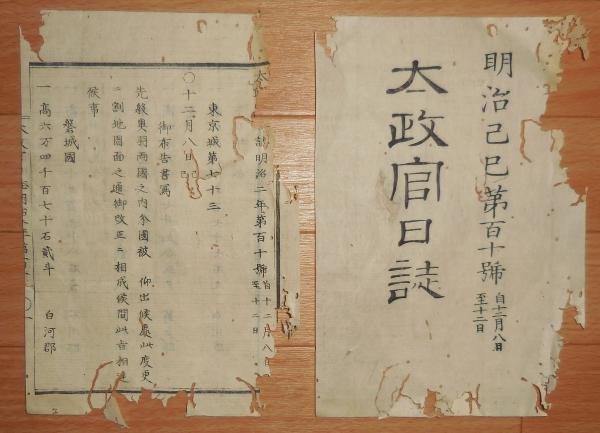 明治己巳第百十號
自十二月八日
至十二日
太政官日誌
太
誌明治二年第百十號
自十二月八日
至十二日
東京城第七十三
〇十二月八日己
御布告書寫
先般奥羽兩國之内分國被 仰出候處此度更
ニ割地圖面之通御改正ニ相成候間此旨相達
候事
磐城國
一高六万四千百七十石貳斗 白河郡